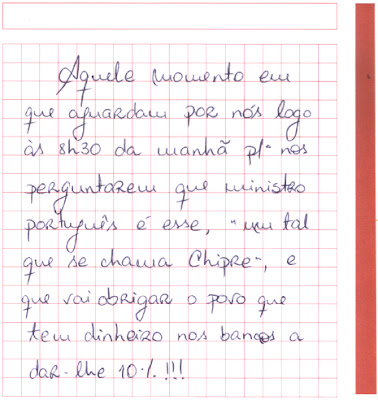 Aquele momento em
que aguardam por nós logo
às 8h30 da manhã p/ nos
perguntarem que ministro
português é esse, "um tal
que se chama Chipre", e
que vai obrigar o povo que
tem dinheiro nos bancos a
dar-lhe 10% !!!